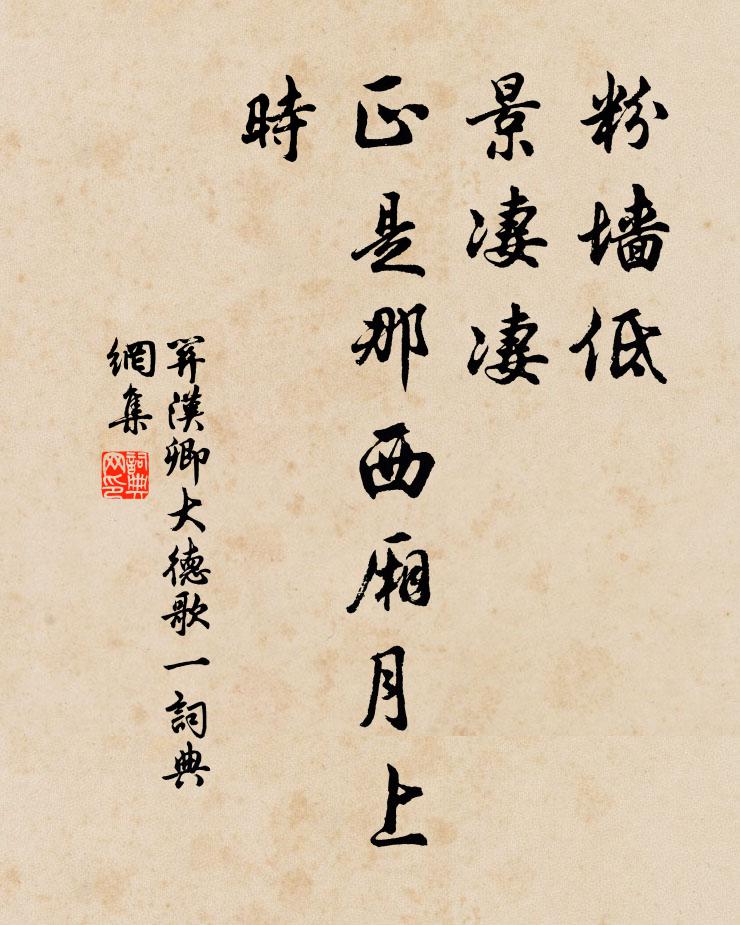 粉墙低
景凄凄
正是那西厢月上
時
关漢卿大德歌一詞典
網集
詞典
网印